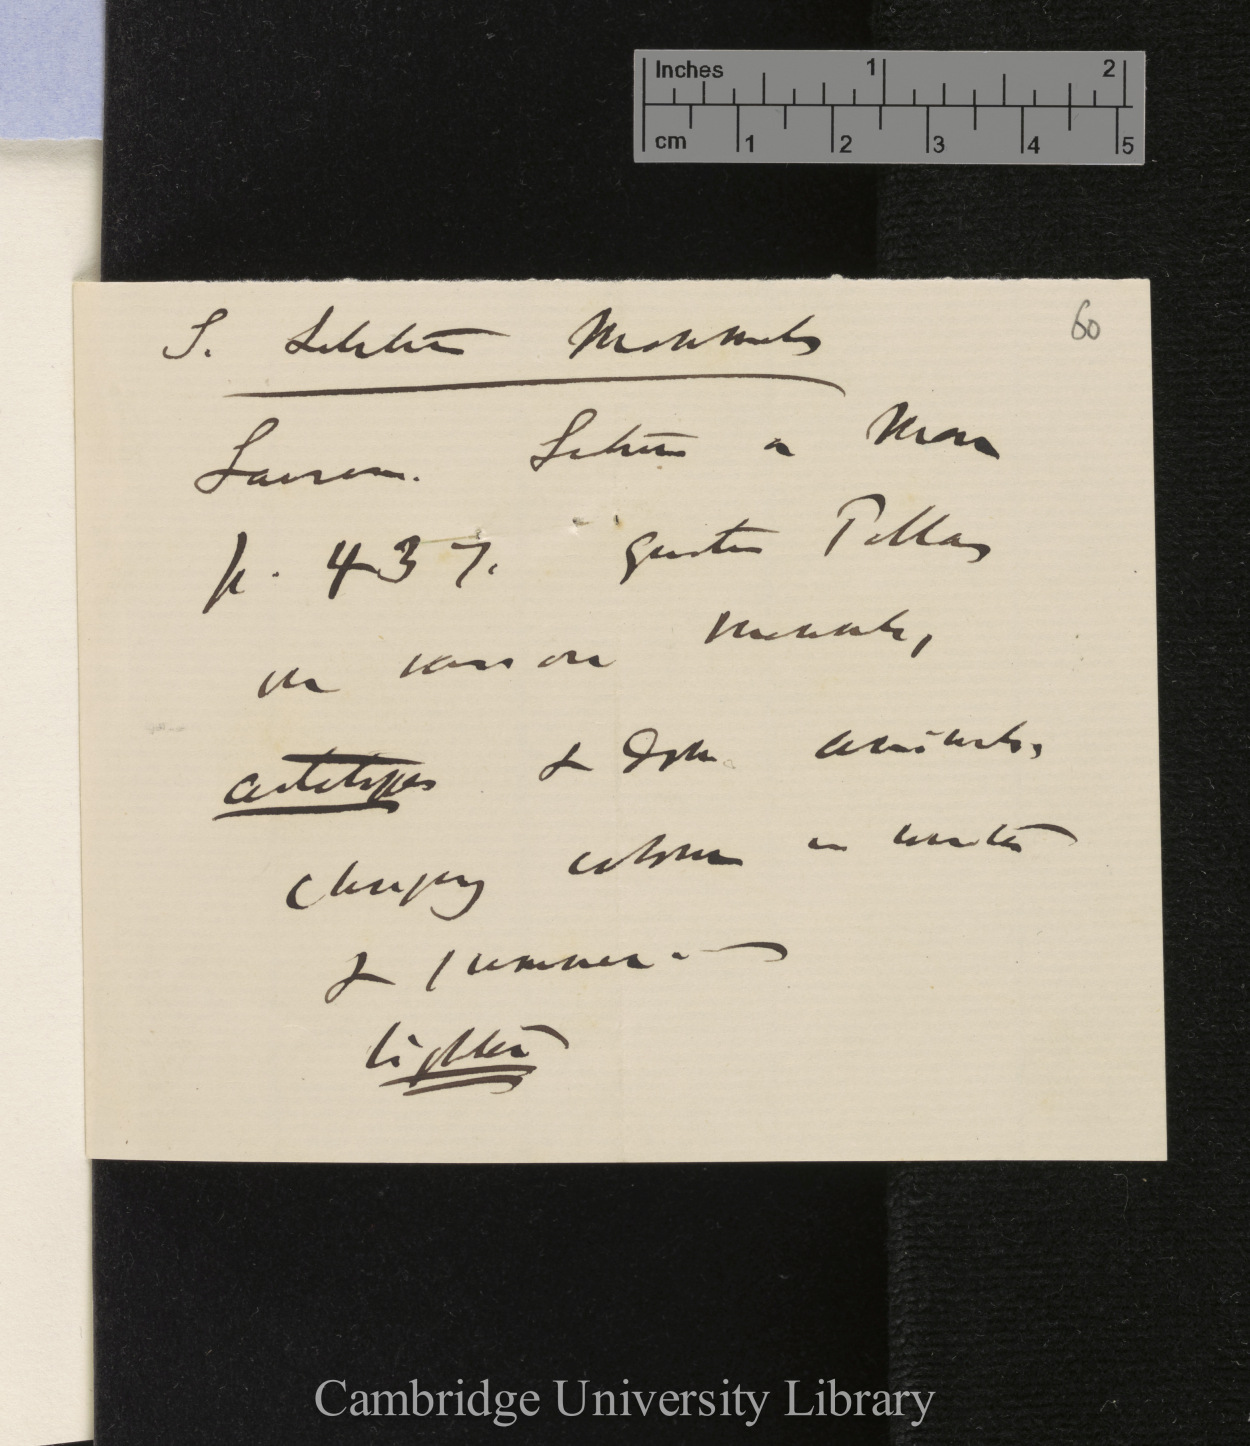 Inches 1 2
cm 1 2 3 4 5
60
S. Selection Mammals
Lawrence. Lectures on Man
p. 437. quotes Pallas
on various mammals,
antelopes & other animals,
changing colour in winter
& summer —
lighter
Cambridge University Library